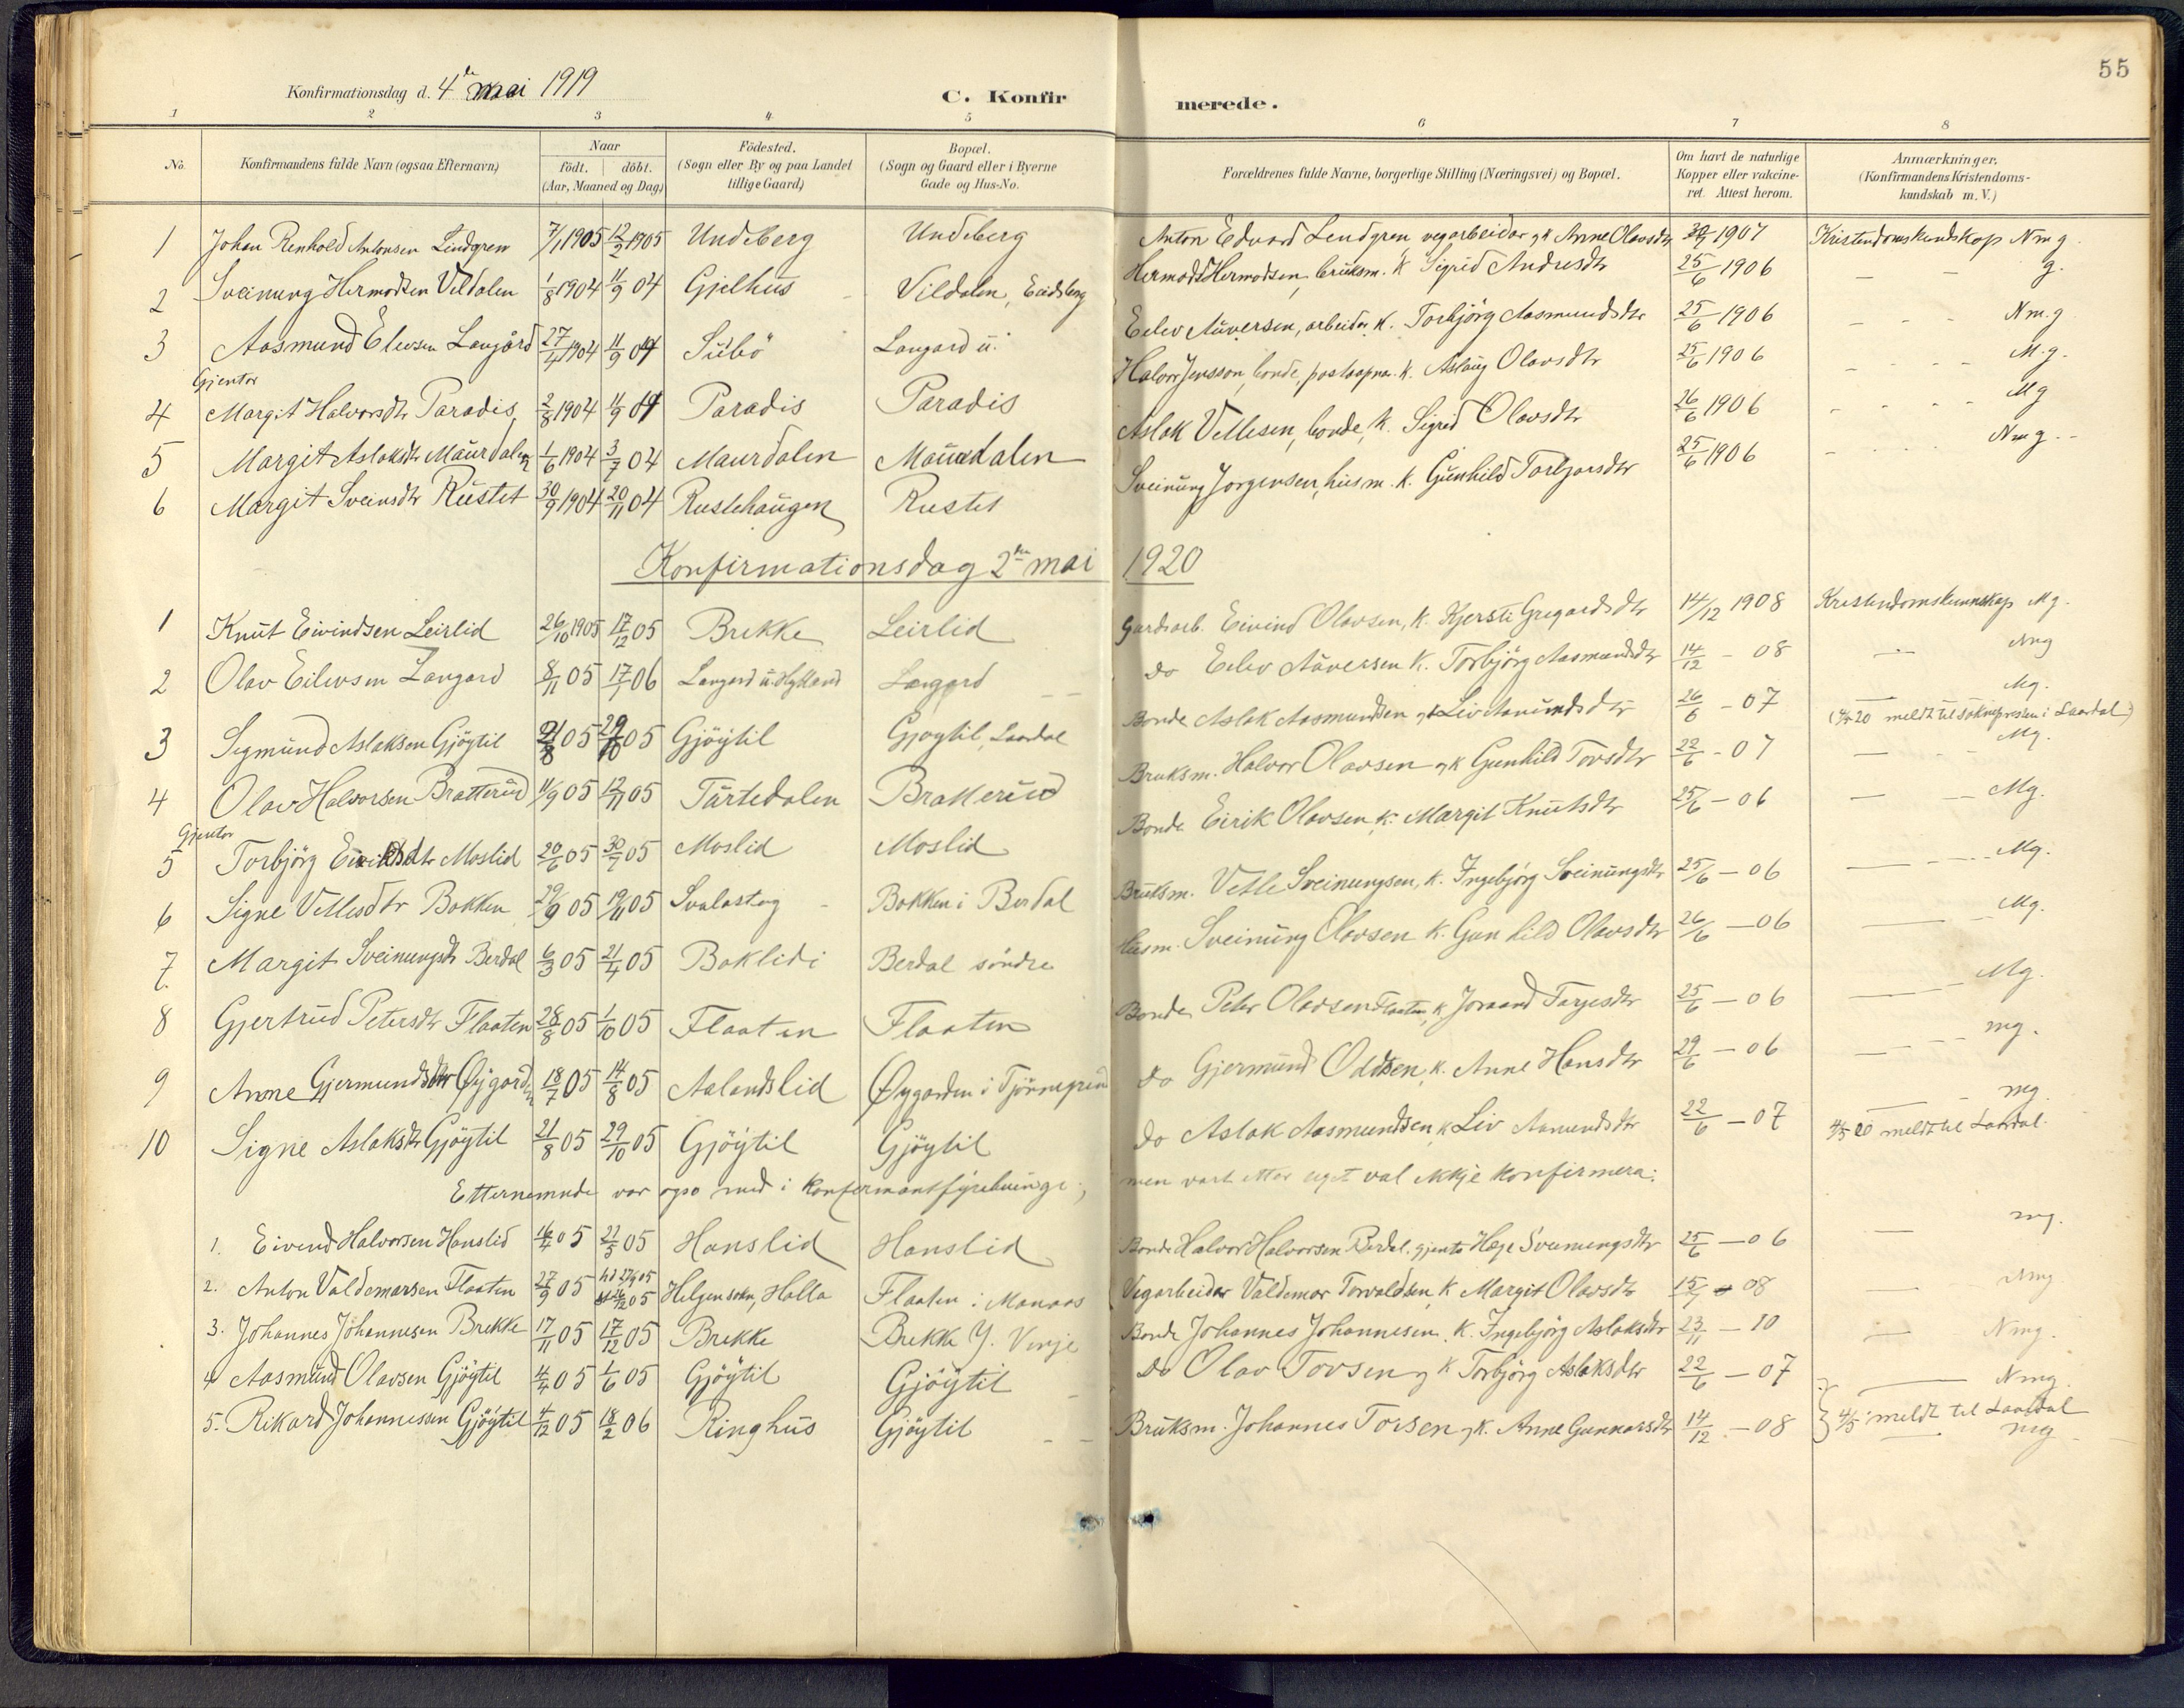 55
Konfirmationsdag d. 4de mai 1919
C. Konfirmerede.
1 2 3 4 5 6 7 8
No. Konfirmandens fulde Navn (ogsaa Efternavn) Naar födt. döbt. (Aar, Maaned og Dag) Födested. (Sogn eller By og paa Landet tillige Gaard) Bopæl. (Sogn og Gaard eller i Byerne Gade og Hus-No. Forældrenes fulde Navne, borgerlige Stilling (Næringsvei) og Bopæl. Om havt de naturlige Kopper eller vakcineret. Attest herom. Anmærkninger. (Konfirmandens Kristendomskundskab m. V.)
1 Johan Renhold Antonsen Lindgren 7/1 1905 12/2 1905 Undeberg Undeberg Anton Edvard Lendgren vegarbeidar gk Anne Olavsdtr 1907 Kristendomskundskap Nmg.
2 Sveinung Hermodsen Vildalen 1/8 1904 11/9 04 Gjelhus Vildalen, Eidsborg Hermod Hermodsen, bruksm. K Sigrid Andresdtr 25/6 1906 — — g.
3 Aasmund Elevsen Langård 27/4 1904 11/9 04 Sübö Langard ü. Eelev Auversen, arbeidar K. Torbjörg Aasmundsdtr 25/6 1906 - - - Nm.g
Gjentor
4 Margit Halvorsdtr Paradis 2/8 1904 11/9 04 Paradis Paradis Halvor Jensson, bonde, postaapnar. K. Aslaug Olavsdtr 25/6 1906 - - - M.g.
5 Margit Aslaksdtr Maurdalen 1/6 1904 3/7 04 Maurdalen Maurdalen Aslak Vetlesen, bonde, K. Sigrid Olavsdtr 26/6 1906 - - - Mg
6 Margit Sveinsdtr Rustet 30/9 1904 20/11 04 Rustehaugen Rustet Sveinung Jorgensen, husm. K. Gunhild Torbjorsdtr 25/6 1906 - - - Nmg.-
Konfirmationsdag 2den mai 1920
1 Knut Eivindsen Leirlid 26/10 1905 17/12 05 Brekke Leirlid Gardsarb. Eivind Olavsen, K. Kjersti Gregardsdtr 14/12 1908 Kristendomskunnskap Mg.
2 Olav Eilevsen Langard 8/11 05 17/1 06 Langard ü. Langard do Eelev Auversen K. Torbjörg Aasmundsdtr 14/12 - 08 — Nmg
3 Sigmund Aslaksen Gjöytil 21/8 05 29/10 05 Gjöytil Gjöytil, Laardal Bonde Aslak Aasmundsen gk Liv Aanundsdtr 26/6 - 07 — Mg. (4/5 20 meldt til soknepresten i Laardal)
4 Olav Halvorsen Bratterud 11/9 05 12/11 05 Tärtedalen Bratterud Bruksm. Halvor Olavsen gk Gunhild Tovsdtr 22/6 - 07 — - Mg.
Gjentor
5 Torbjörg Eiriksdtr Moslid 20/6 05 30/7 05 Moslid Moslid Bonde Eirik Olavsen K. Margit Knutsdtr 25/6 - 06 — — Mg.
6 Signe Vetlesdtr Bakken 29/9 05 19/11 05 Svalastog - Bakken i Berdal Bruksm. Vetle Sveinungsen, K. Ingebjörg Sveinungsdtr 25/6 - 06 — - - Mg.
7. Margit Sveinungsdtr Berdal 6/3 05 21/4 05 Baklidi Berdal söndre Husm. Sveinung Olavsen K. Gunhild Olavsdtr 26/6 - 06 — — Mg.
8 Gjertrud Petersdtr Flaaten 28/8 05 1/10 05 Flaaten Flaaten Bonde Peter Olavsen Flaaten, K Joraand Tarjesdtr 25/6 - 06 — — Mg.
9 Anne Gjermundsdtr Øygard 18/7 05 14/8 05 Aalandslid Øygarden i Tjönnegrend do Gjermund Oddsen, K. Anne Hansdtr 29/6 - 06 — - mg.
10 Signe Aslaksdtr Gjöytil 21/8 05 29/10 05 Gjöytil Gjöytil do Aslak Aasmundsen, K Liv Aanundsdtr 22/6 - 07 — mg. 4/5 20 meldt til Laardal.
Etternemnde var ogso med i konfirmantfyrebuinga; men vart etter eiget val ikkje konfirmera:
1. Eivind Halvorsen Hanslid 16/4 05 21/5 05 Hanslid Hanslid Bonde Halvor Halvorsen Berdal. gjenta Hæge Sveinungsdtr 25/6 - 06 — mg.
2. Anton Valdemarsen Flaaten 27/9 05 05 Helgen sokn, Holla Flaaten i Manaas Vegarbeidar Valdemar Torvaldsen, K Margit Olavsdtr 15/7 - 08 — Nmg
3. Johannes Johannesen Brekke 17/11 05 17/12 05 Brekke Brekke Y. Vinje Bonde Johannes Johannesen, K. Ingebjörg Aslaksdtr 23/11 - 10 — Nmg.
4 Aasmund Olavsen Gjöytil 4/4 05 1/6 05 Gjöytil Gjöytil - do Olav Tovsen gk Torbjörg Aslaksdtr 22/6 - 07 — Nmg.
4/5 meldt til Laardal
5. Rikard Johannessen Gjöytil 4/12 05 18/2 06 Ringhus Gjöytil - - Bruksm. Johannes Tovsen gk. Anne Gunnarsdtr 14/12 - 08 — mg -